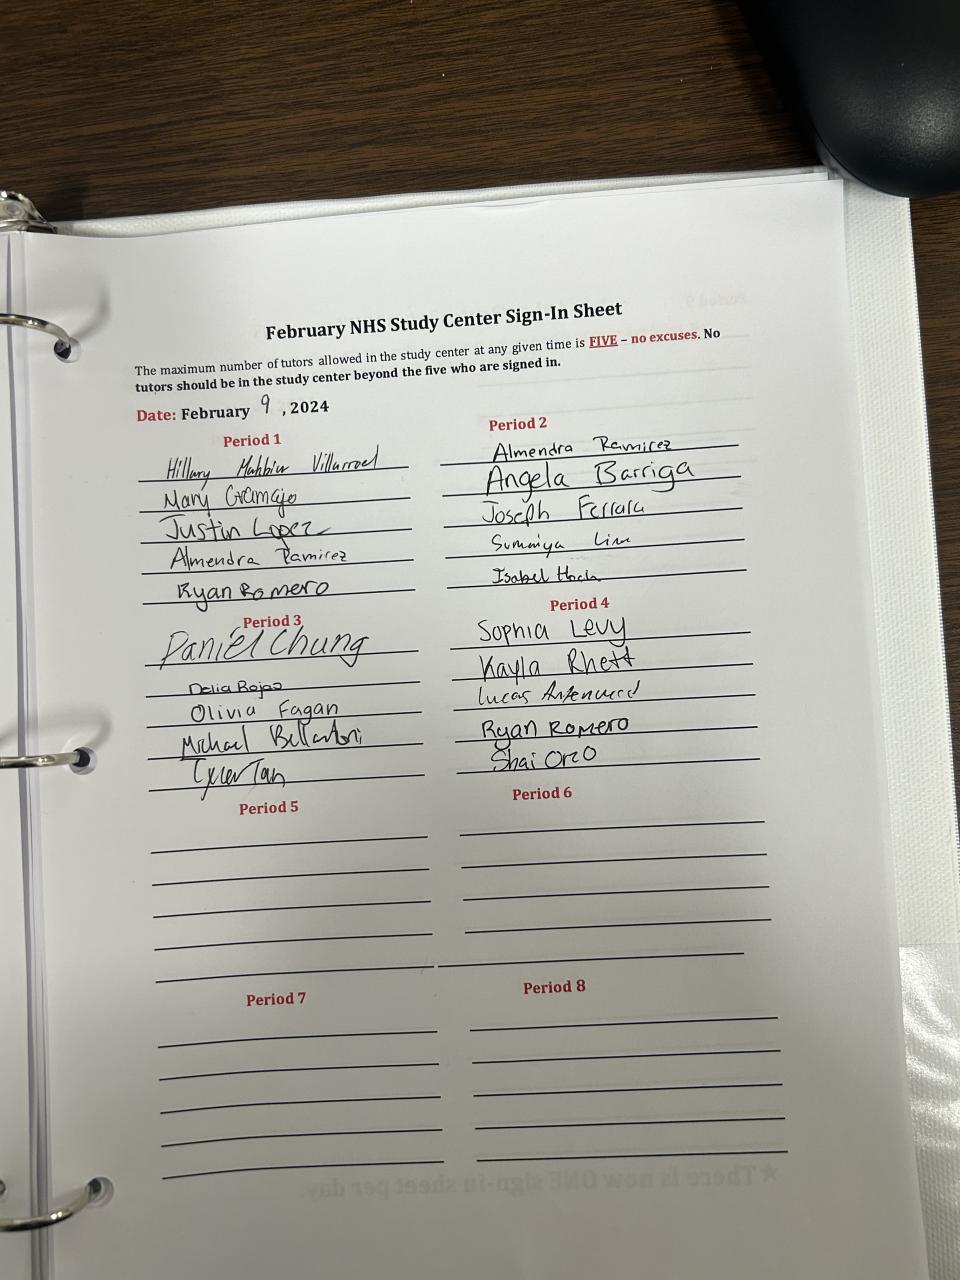 February NHS Study Center Sign-In Sheet
The maximum number of tutors allowed in the study center at any given time is FIVE – no excuses. No
tutors should be in the study center beyond the five who are signed in.
Date: February 9, 2024
Period 1
Hillary Villarroel
Mary Gramajo
Justin Lopez
Almendra Ramirez
Ryan Romero
Period 2
Almendra Ramirez
Angela Barriga
Joseph Ferrara
Sumaiya Lim
Isabel
Period 3
Daniel Chung
Delia Rojas
Olivia Fagan
Michael Bellantoni
Tan
Period 4
Sophia Levy
Kayla Rhett
Lucas
Ryan Romero
Shai Oreo
Period 5
Period 6
Period 7
Period 8
★There is now ONE sign-in sheet per day.